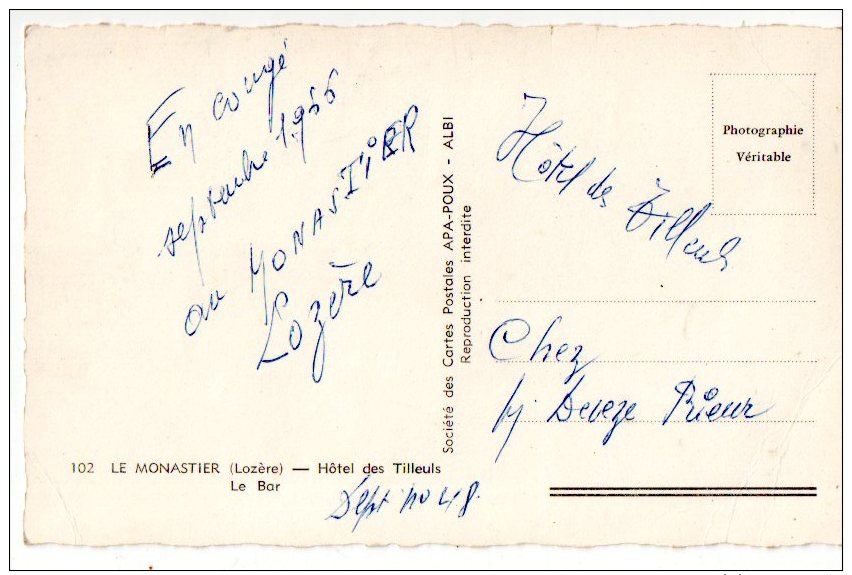 En congé
septembre 1966
au MONASTIER
Lozère
Société des Cartes Postales APA-POUX - ALBI
Reproduction interdite
Photographie
Véritable
Hôtel des Tilleuls
Chez
Deveze Prieur
102 LE MONASTIER (Lozère) — Hôtel des Tilleuls
Le Bar
Sept no 48.